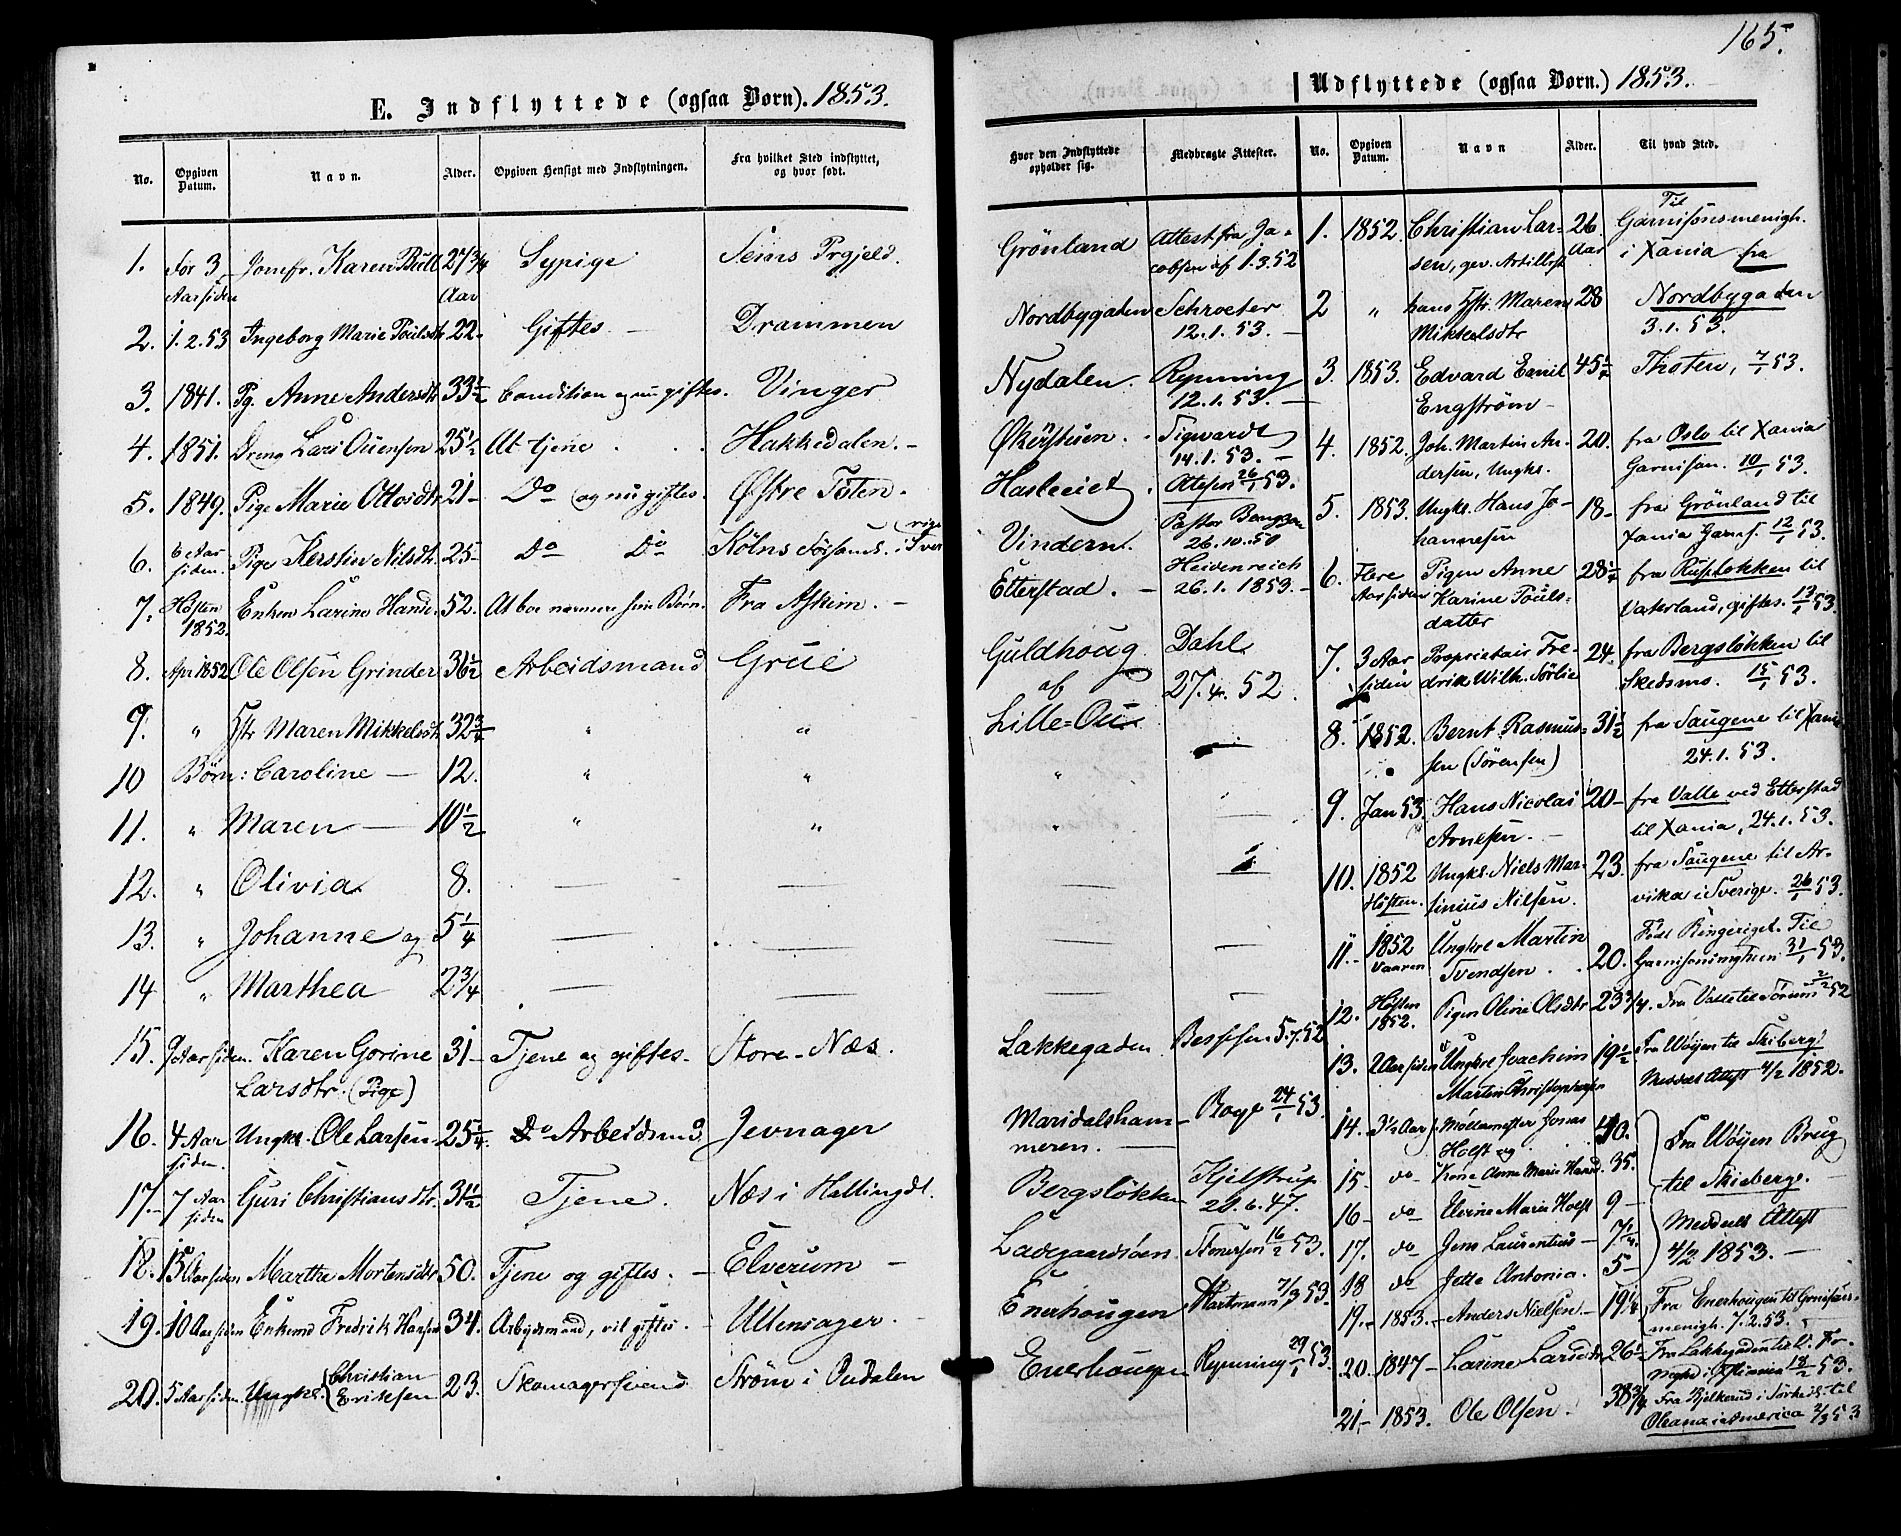 165.
E. Indflyttede (ogsaa Børn). 1853.
No. Opgiven Datum. Navn. Alder. Opgiven Hensigt med Indflytningen. Fra hvilket Sted indflyttet, og hvor født.
1. For 3 Aar siden Jomfr. Karen Bull 27 3/4 Aar Sypige Prgjeld.
2. 1.2.53 Ingeborg Marie Poulsdtr 22- Giftes. — Drammen
3. 1841. Pg. Anne Andersdtr 33 1/2 Condition og nu giftes. Vinger
4. 1851. Dreng Lars 25 1/2 At tjene . . Hakkedalen. -
5. 1849. Pige Marie Ottosdtr 21- Do (og nu giftes. Østre Toten.
6. 6 Aar siden. Pige Kerstin Nilsdtr. 25- Do Do Kölns i Sverrige
7. Høsten 1852. Enken Larine Hansd. 52. At boe nærmere sine Børn. Fra Askim. -
8. Apr 1852 Ole Olsen Grinder 36 1/2 Arbeidsmand Grue
9. " Maren Mikkelsdtr. 32 3/4 " "
10 Børn: Caroline — 12. " "
11. " Maren — 10 1/2 " "
12. " Olivia 8. — —
13. " Johanne og 5 1/4 — —
14 " Marthea 2 3/4 — —
15. 9 Aar siden. Karen Gorine Larsdtr. (Pige) 31- Tjene og giftes- Store-Næs.
16. 4 Aar siden. Ungk. Ole Larsen 25 1/4 Do Arbeidsmd. Jevnager
17.- 7 Aar siden Guri Christiansdtr. 31 1/2 Tjene. Næs i Hallingdl.
18. 15 Aar siden Marthe Mortensdtr 50. Tjene og giftes. - Elverum -
19. 10 Aar siden Enkemd Fredrik Hansen 34. Arbejdsmand, vil giftes. - Ullensager. -
20. 5 Aar siden. Ungk. (Christian Eriksen 23. Skomagersvend Strøm i Oudalen
Hvor den Indflyttede opholder sig. Medbragte Attester.
Grönland Attest fra Jacobsen af 1.3.52
Nordbygaden Schroeter 12.1.53. —
Nydalen. Rynning 12.1.53. —
Sigwardt 14.1.53. —
Attest 26/1 53.
Vindern. Pastor 26.10.50
Etterstad. - Heidenreich 26.1.1853. -
Guldhoug af Lille-Ou Dahl 27.4.52.
" —
" —
— —
— —
— —
Lakkegaden Bessesen 5.7.52
Maridalshammeren. — Boye 24/1 53.
Bergsløkken Kjelstrup 20.6.47.
Ladegaardsöen. 16/2 53.
Enerhougen Hartmann 7/3 53.
Enerhougen Rynning 29/1 53.
Udflyttede (ogsaa Børn.) 1853.
No. Opgiven Datum. Navn Alder. Til hvad Sted.
1. 1852. Christian Larsen, gev. Artillerist 26. Aar Til Garnisonsmenigh. i Xania fra
2 " hans Hstr. Maren Mikkelsdtr 28 Nordbygaden 3.1.53.
3. 1853. Edvard Emil Engström- 45 1/4 Thoten, 7/1 53.
4. 1852. Joh. Martin Andersen, Ungk. 20. fra Oslo til Xania Garnison. 10/1 53.
5. 1853. Ungk. Hans Johannesen 18- fra Grönland til Xania Garnis. 12/1 53.
6. Flere Aar siden Pigen Anne Karine Poulsdatter 28 1/4 fra Ruseløkken til Vaterland, giftes. 13/1 53.
7. 3 Aar siden Proprietair Fredrik Wilh. Sörlie 24. fra Bergsløkken til Skedsmo. 15/1 53.
8. 1852. Bernt Rasmussen (Sörensen) 31 1/2 fra Saugene til Xania 24.1.53.
9. Jan 53. Hans Nicolai Arnesen. — 20- fra Valle ved Etterstad til Xania, 24.1.53.
10. 1852 Høsten. Ungk. Niels Martinius Nilsen. 23. fra Saugene til Arvika i Sverige. 26/1 53.
11.- 1852 Vaaren Ungkrl Martin Svendsen. 20. Født Ringeriget. Til 31/1 53.
12. Høsten 1852. Pigen Oline Olsdtr 23 3/4. Fra Valle til Sörum 2/2 52
13. 2 Aar siden Ungkrl Joachim Martin Christophersen 19 1/2 Fra Wöyen til Skiberg? Meddelt Attest 4/2 1852.
14.- 3 1/2 Aar s. Møllemester Jonas Holst og 40. Fra Wöyen Brug
15- do- Kone Anne Marie Hansd. 35. til Skieberge.
16- do Elvine Marie Holst 9 - Meddelt Attest
17. do Jens Laurentius - 7 1/4. 4/2 1853. —
18 do Jette Antonia. 5-
19.- 1853.- Anders Nielsen- 19 1/8 Fra Enerhougen til Garnisonsmenigh. 7.2.53. —
20. 1847- Larine Larsdtr 26 1/4 Fra Lakkegaden til i Christiania 18/2 53.
21- 1853. Ole Olsen. 38 3/4 Fra Bjelkerud i Sörkedl. til Oleana i America 2/3 53